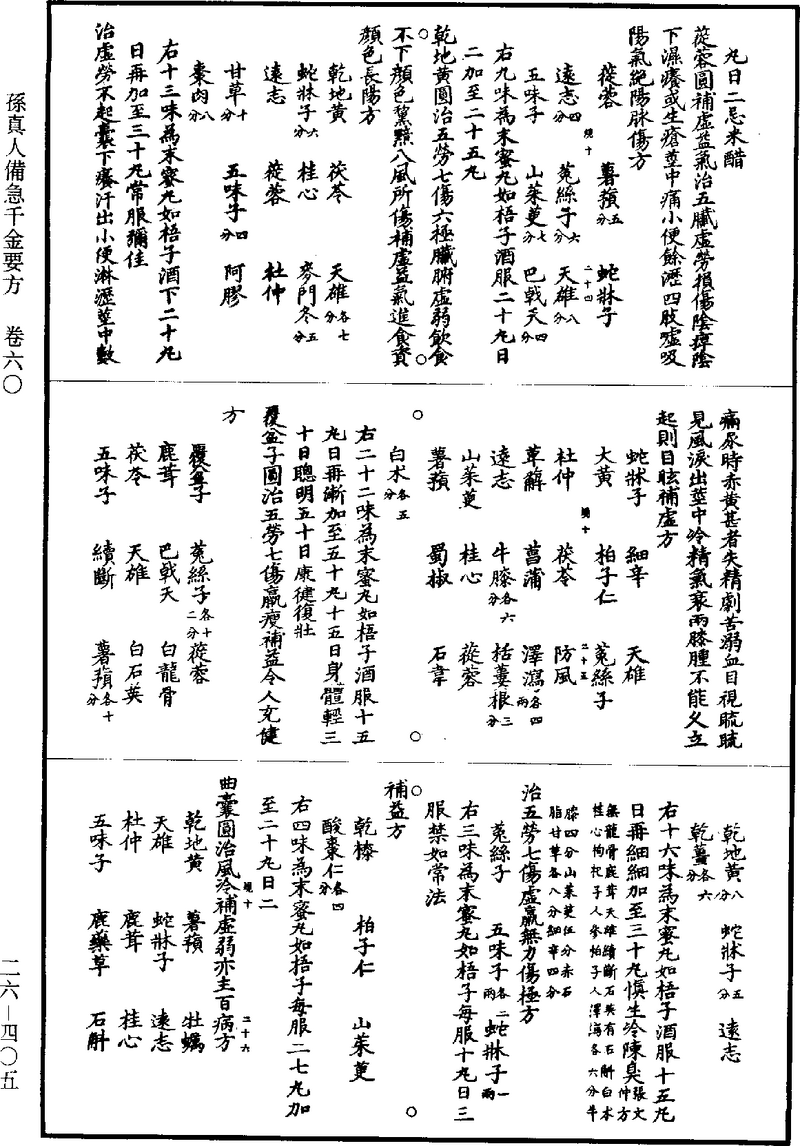 孫真人備急千金要方　卷六〇
二六—四〇五
丸日二忌米醋
蓯蓉圓補虛益氣治五臟虛勞損傷陰痹陰
下濕癢或生瘡莖中痛小便餘瀝四肢噓吸
陽氣絕陽脉傷方
蓯蓉　薯蕷五分　蛇牀子
遠志四　續十　菟絲子六分　天雄八分　二十四
五味子　山茱萸七分　巴戟天四分
右九味為末蜜丸如梧子酒服二十丸日
二加至二十五丸
乾地黃圓治五勞七傷六極臟腑虛弱飲食
不下顏色黧黯八風所傷補虛益氣進食資
顏色長陽方
乾地黃　茯苓　天雄各七分
蛇牀子六分　桂心　麥門冬五分
遠志　蓯蓉　杜仲
甘草十分　五味子四分　阿膠
棗肉八分
右十三味為末蜜丸如梧子酒下二十丸
日再加至三十丸常服彌佳
治虛勞不起囊下癢汗出小便淋瀝莖中數
痛尿時赤黃甚者失精劇苦溺血目視䀮䀮
見風淚出莖中冷精氣衰兩膝腫不能久立
起則目眩補虛方
蛇牀子　細辛　天雄
大黃　柏子仁　菟絲子
杜仲　續十　茯苓　防風　二十五
萆薢　菖蒲　澤瀉各四兩
遠志　牛膝各六分　栝蔞根三分
山茱萸　桂心　蓯蓉
薯蕷　蜀椒　石韋
白朮各五分
右二十二味為末蜜丸如梧子酒服十五
丸日再漸加至五十丸十五日身體輕三
十日聰明五十日康健復壯
覆盆子圓治五勞七傷羸瘦補益令人充健
方
覆盆子　菟絲子各十二分　蓯蓉
鹿茸　巴戟天　白龍骨
茯苓　天雄　白石英
五味子　續斷　薯蕷各十分
乾地黃八分　蛇牀子五分　遠志
乾薑各六分
右十六味為末蜜丸如梧子酒服十五丸
日再細細加至三十丸慎生冷陳臭張文仲方
無龍骨鹿茸天雄續斷石英有石斛白朮
桂心枸杞子人參柏子人澤瀉各六分牛
膝四分山茱萸伍分赤石
脂甘草各八分細辛四分
治五勞七傷虛羸無力傷極方
菟絲子　五味子各二兩　蛇牀子一兩
右三味為末蜜丸如梧子每服十丸日三
服禁如常法
補益方
乾漆　柏子仁　山茱萸
酸棗仁各四分
右四味為末蜜丸如梧子每服二七丸加
至二十丸日二
曲囊圓治風冷補虛弱亦主百病方
乾地黃　續十　薯蕷　牡蠣　二十六
天雄　蛇牀子　遠志
杜仲　鹿茸　桂心
五味子　鹿藥草　石斛